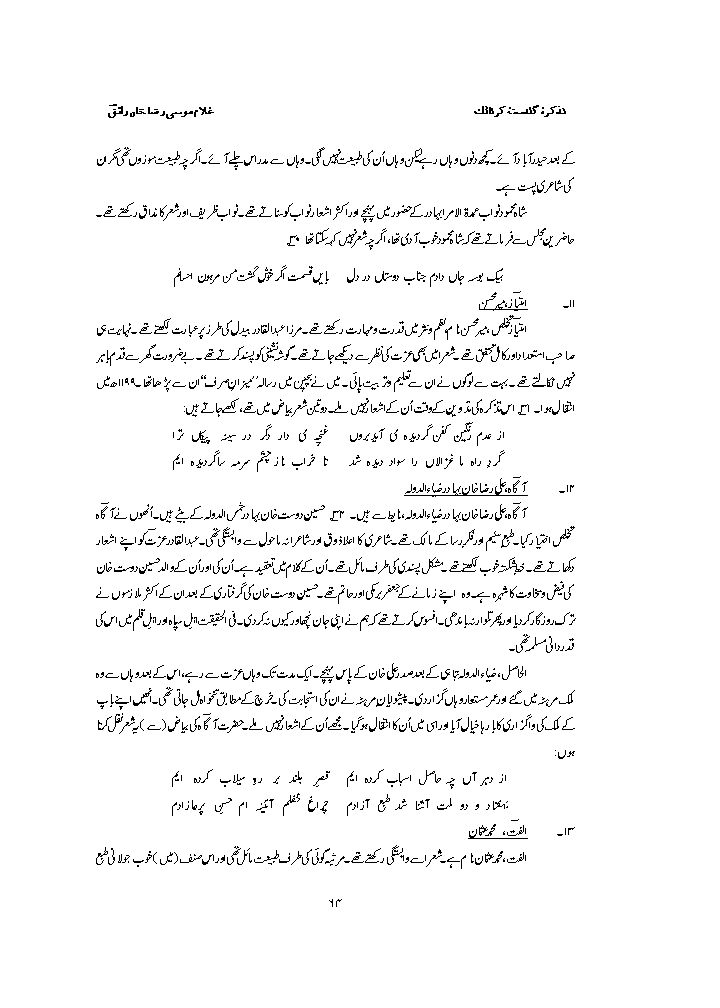 تذکرۂ گلدستۂ کرناٹک غلام موسیٰ رضا خاں رائق
کے بعد حیدرآباد آئے۔ کچھ دنوں وہاں رہے لیکن وہاں اُن کی طبیعت نہیں لگی۔ وہاں سے مدراس چلے آئے۔ اگرچہ طبیعت موزوں تھی مگر ان
کی شاعری پست ہے۔
شاہ محمود نواب عمدۃ الامرا بہادر کے حضور میں پہنچے اور اکثر اشعار نواب کو سناتے تھے۔ نواب ظریف اور شعر کا مذاق رکھتے تھے۔
حاضرینِ مجلس سے فرماتے تھے کہ شاہ محمود خوب آدمی تھا، اگرچہ شعر نہیں کہہ سکتا تھا ۳۰؎
بیک بوسہ جاں دادم جناب دوستاں در دل بایں قسمت اگر خوش گشت من مرہون احسانم
۱۱۔ امتیاز، میر محسن
امتیاز تخلص، میر محسن نام نظم و نثر میں قدرت و مہارت رکھتے تھے۔ مرزا عبدالقادر بیدل کی طرز پر عبارت لکھتے تھے۔ نہایت ہی
صاحب استعداد اور کامل محقق تھے۔ شعرا میں بھی عزت کی نظر سے دیکھے جاتے تھے۔ گوشہ نشینی کو پسند کرتے تھے۔ بے ضرورت گھر سے قدم باہر
نہیں نکالتے تھے۔ بہت سے لوگوں نے ان سے تعلیم و تربیت پائی۔ میں نے بچپن میں رسالہ ”میزانِ صرف“ ان سے پڑھا تھا۔ ۱۱۹۹ھ میں
انتقال ہوا۔ ۳۱؎ اس تذکرہ کی تدوین کے وقت اُن کے اشعار نہیں ملے۔ دو تین شعر بیاض میں تھے، لکھے جاتے ہیں:
از عدم رنگین کفن گردیدہ ی آید بروں غنچہ ی دار دگر در سینہ پیکاں ترا
گردِ راہ ما غزالاں را سواد دیدہ شد تا خراب ناز چشم سرمہ سا گردیدہ ایم
۱۲۔ آگاہ، علی رضا خان بہادر ضیاء الدولہ
آگاہ، علی رضا خان بہادر ضیاء الدولہ، نایط سے ہیں۔ ۳۲؎ حسین دوست خان بہادر شمس الدولہ کے بیٹے ہیں۔ اُنھوں نے آگاہ
تخلص اختیار کیا۔ طبع سلیم اور فکر رسا کے مالک تھے۔ شاعری کا اعلا ذوق اور شاعرانہ ماحول سے وابستگی تھی۔ عبدالقادر عزت کو اپنے اشعار
دکھاتے تھے۔ خطِ شکستہ خوب لکھتے تھے۔ مشکل پسندی کی طرف مائل تھے۔ اُن کے کلام میں تعقید ہے۔ اُن کی اور اُن کے والد حسین دوست خان
کی فیض و سخاوت کا شہرہ ہے۔ وہ اپنے زمانے کے جعفر برمکی اور حاتم تھے۔ حسین دوست خان کی گرفتاری کے بعد ان کے اکثر ملازموں نے
ترک روزگار کر دیا اور پھر تلوار نہ باندھی۔ افسوس کرتے تھے کہ ہم نے اپنی جان نچھاور کیوں نہ کر دی۔ فی الحقیقت اہلِ سپاہ اور اہلِ قلم میں اس کی
قدردانی مسلمہ تھی۔
الحاصل، ضیاء الدولہ تباہی کے بعد صفدر علی خان کے پاس پہنچے۔ ایک مدت تک وہاں عزت سے رہے، اس کے بعد وہاں سے وہ
ملک مرہٹہ میں گئے اور عمر مستعار وہاں گزار دی۔ پیشوایانِ مرہٹہ نے ان کی استجابت کی۔ خرچ کے مطابق تنخواہ مل جاتی تھی۔ انھیں اپنے باپ
کے ملک کی واگزاری کا بارہا خیال آیا اور اسی میں اُن کا انتقال ہو گیا۔ مجھے اُن کے اشعار نہیں ملے۔ حضرت آگاہ کی بیاض (سے) یہ شعر نقل کرتا
ہوں:
از دہر آں چہ حاصل اسباب کردہ ایم قصرِ بلند بر روِ سیلاب کردہ ایم
بہفتاد و دو ملت آشنا شد طبع آزادم چراغِ محفلم آئینہ ام حسنِ پریزادم
۱۳۔ الفت، محمد عثمان
الفت، محمد عثمان نام ہے۔ شعرا سے وابستگی رکھتے تھے۔ مرثیہ گوئی کی طرف طبیعت مائل تھی اور اس صنف (میں) خوب جولانیٔ طبع
۶۴